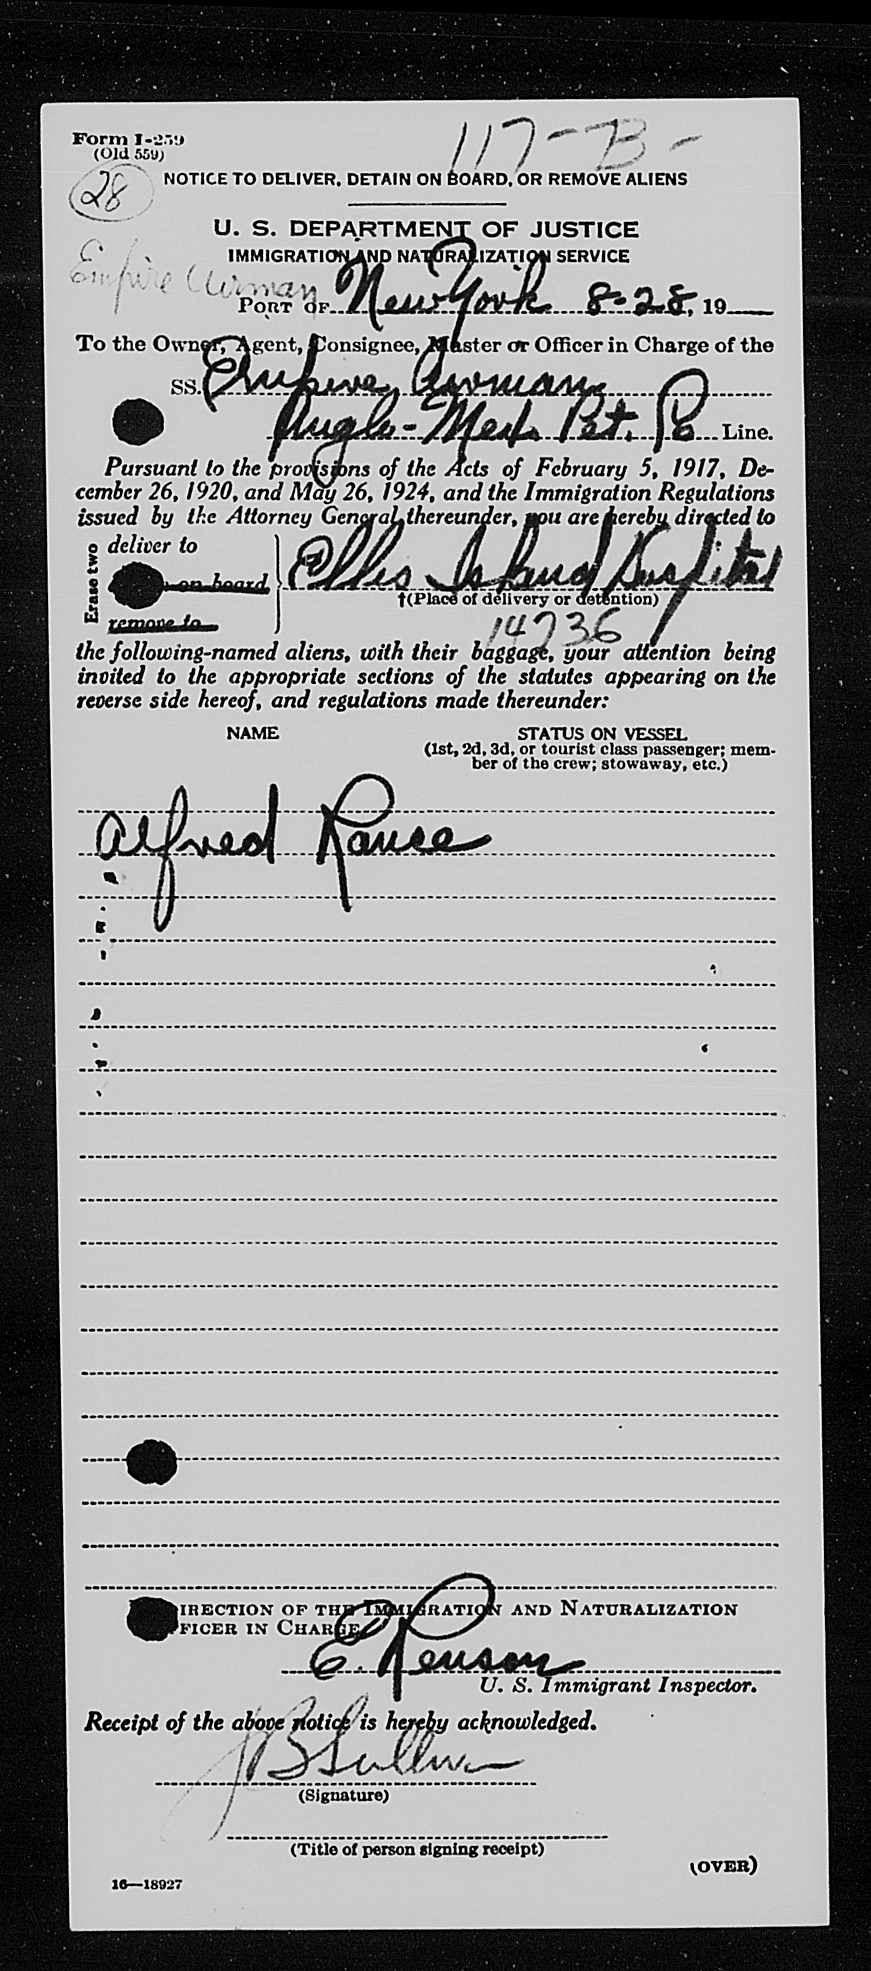 Form I-259
(Old 559)
117-B-
28
NOTICE TO DELIVER, DETAIN ON BOARD, OR REMOVE ALIENS
U. S. DEPARTMENT OF JUSTICE
IMMIGRATION AND NATURALIZATION SERVICE
Empire Airman
PORT OF New York 8-28, 19
To the Owner, Agent, Consignee, Master or Officer in Charge of the
SS. Empire Airman
Anglo-Mex. Pet. Co Line.
Pursuant to the provisions of the Acts of February 5, 1917, De-
cember 26, 1920, and May 26, 1924, and the Immigration Regulations
issued by the Attorney General thereunder, you are hereby directed to
Erase two
deliver to
on board
remove to
Ellis Island Hospital
†(Place of delivery or detention)
14736
the following-named aliens, with their baggage, your attention being
invited to the appropriate sections of the statutes appearing on the
reverse side hereof, and regulations made thereunder:
NAME STATUS ON VESSEL
(1st, 2d, 3d, or tourist class passenger; mem-
ber of the crew; stowaway, etc.)
Alfred
IRECTION OF THE IMMIGRATION AND NATURALIZATION
FICER IN CHARGE
E. Renson
U. S. Immigrant Inspector.
Receipt of the above notice is hereby acknowledged.
JB Sullivan
(Signature)
(Title of person signing receipt)
(OVER)
16—18927